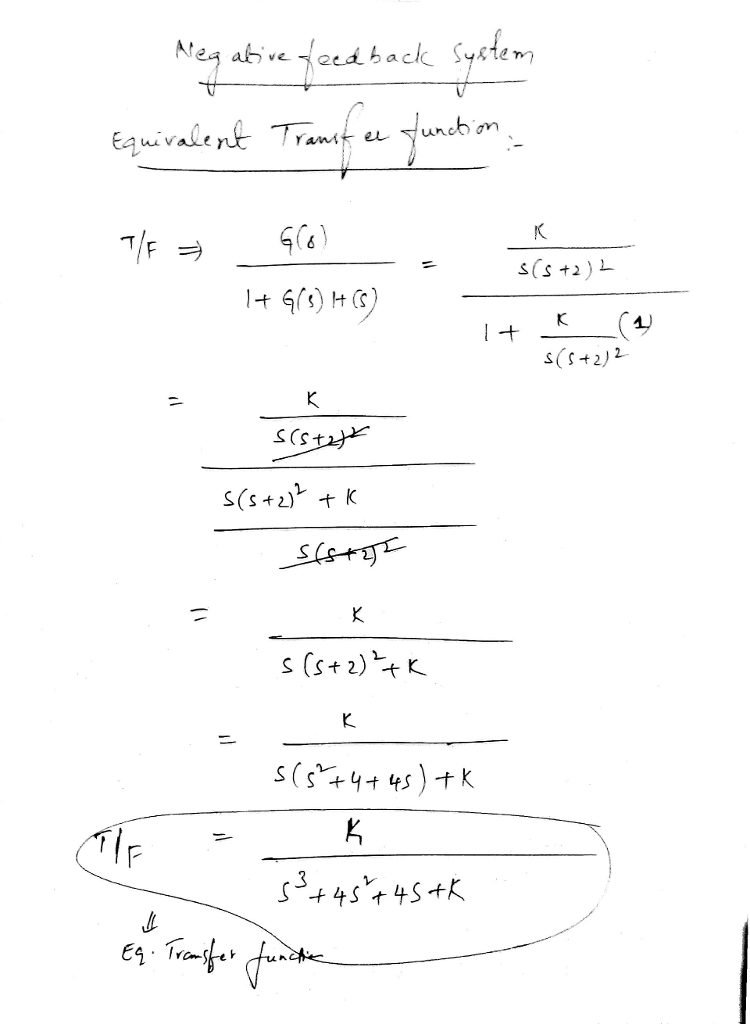 Negative feedback System
Equivalent Transfer function :-
T/F ⇒ G(s) / 1 + G(s) H(s) = K / s(s+2)2 / 1 + K / s(s+2)² (1)
= K / s(s+2)² / s(s+2)² + K / s(s+2)²
= K / s(s+2)² + K
= K / s(s² + 4 + 4s) + K
T/F = K / s³ + 4s² + 4s + K
⇓
Eq. Transfer function